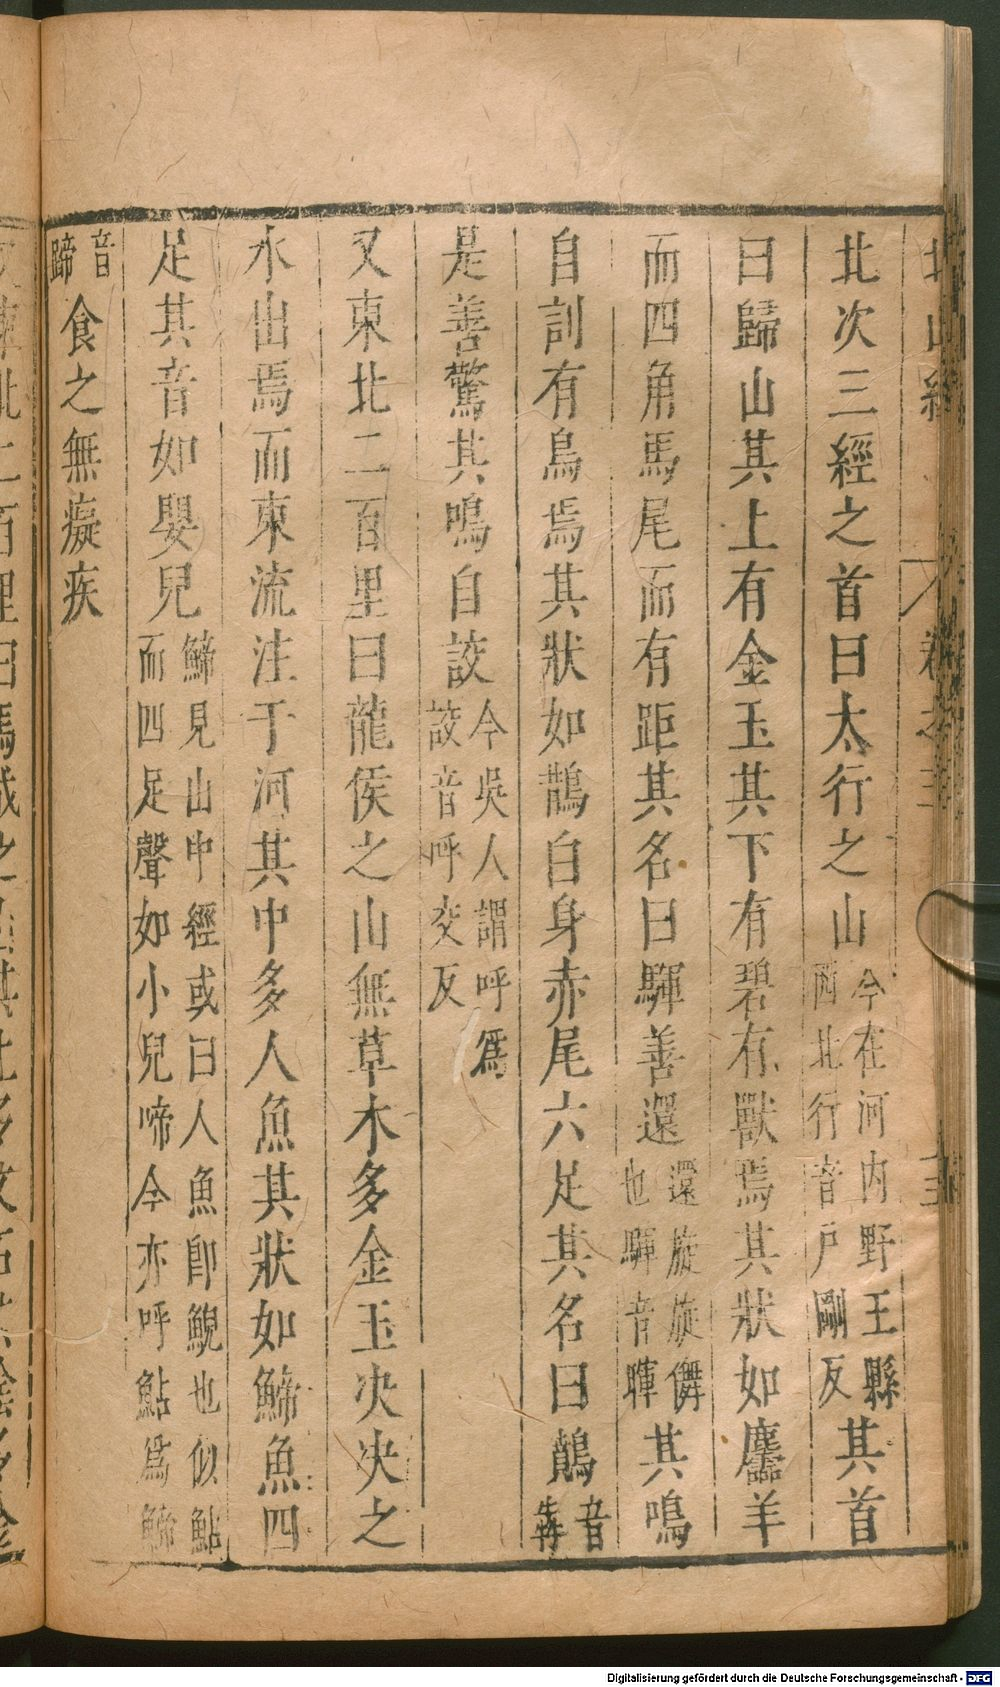 北次三經之首曰太行之山今在河内野王縣西北行音戶剛反其首
曰歸山其上有金玉其下有碧有獸焉其狀如麢羊
而四角馬尾而有距其名曰䮝善還還旋旋儛也䮝音暉其鳴
自訓有鳥焉其狀如鵲白身赤尾六足其名曰鷾音犇
是善驚其鳴自詨今吳人謂呼爲詨音呼交反
又東北二百里曰龍侯之山無草木多金玉決決之
水出焉而東流注于河其中多人魚其狀如䱱魚四
足其音如嬰兒䱱見山中經或曰人魚即鯢也似鮎而四足聲如小兒啼今亦呼鮎爲䱱
音蹄食之無癡疾
Digitalisierung gefördert durch die Deutsche Forschungsgemeinschaft - DFG